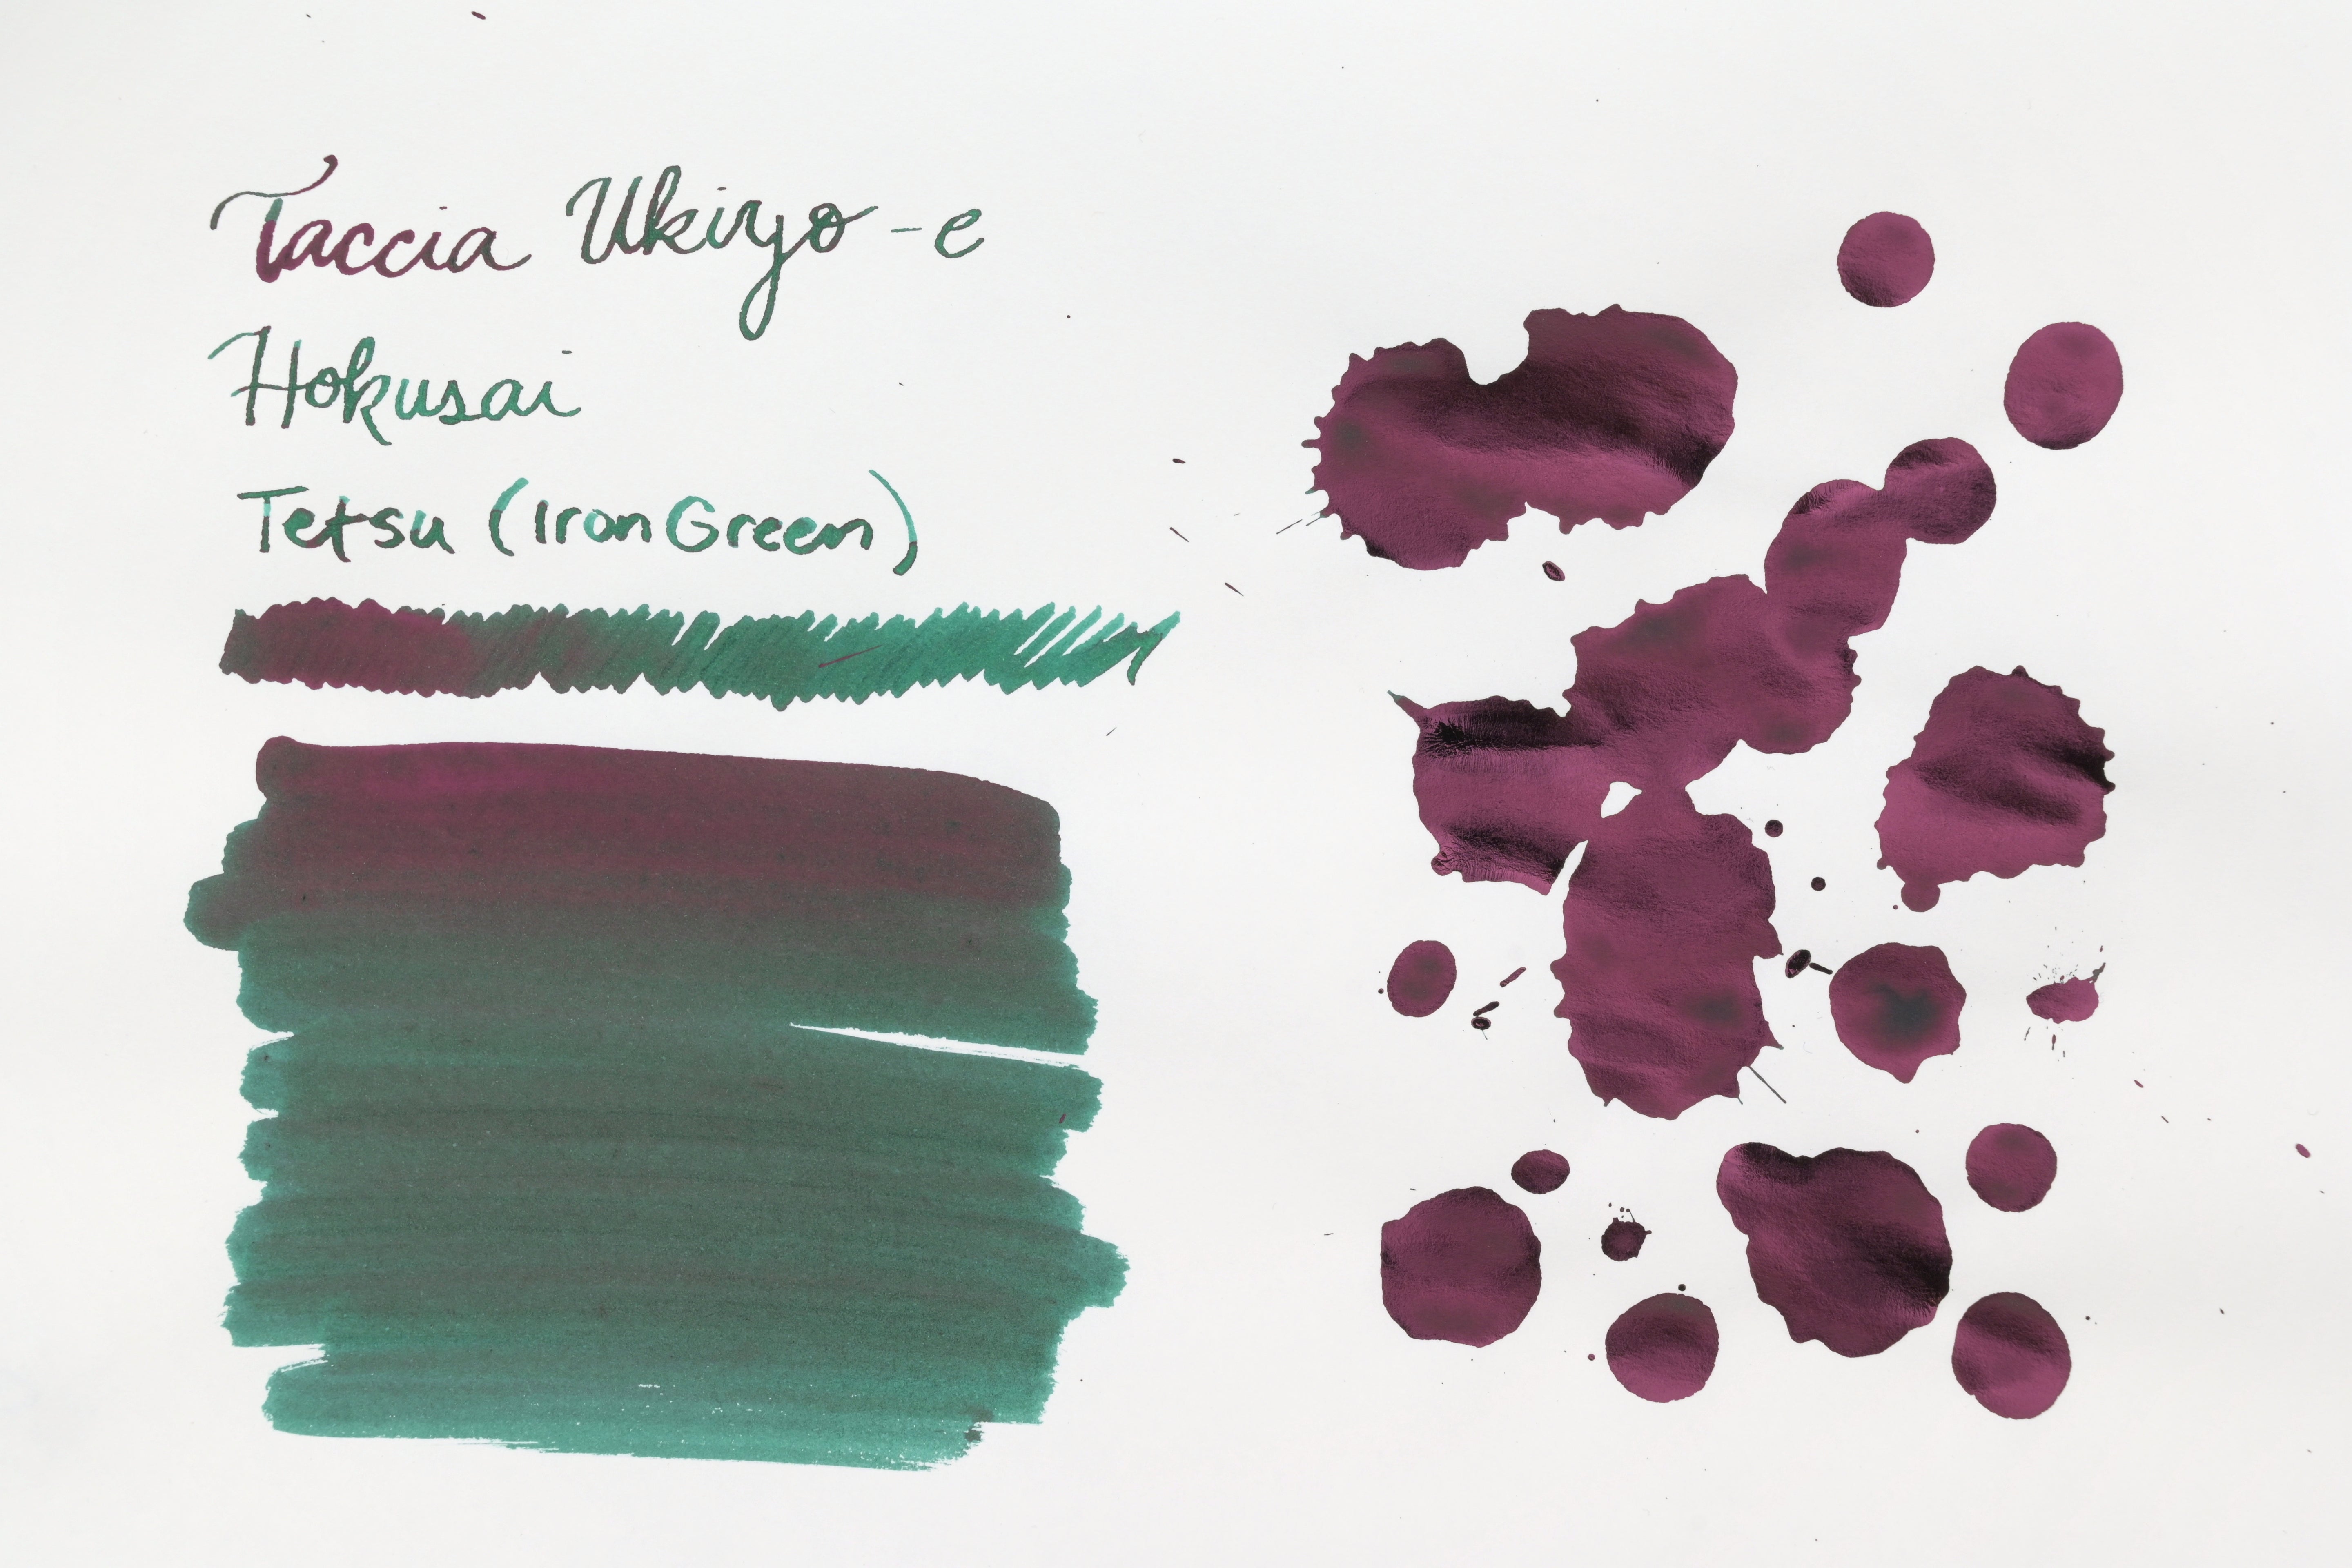 Taccia Ukiyo-e
Hokusai
Tetsu (Iron Green)